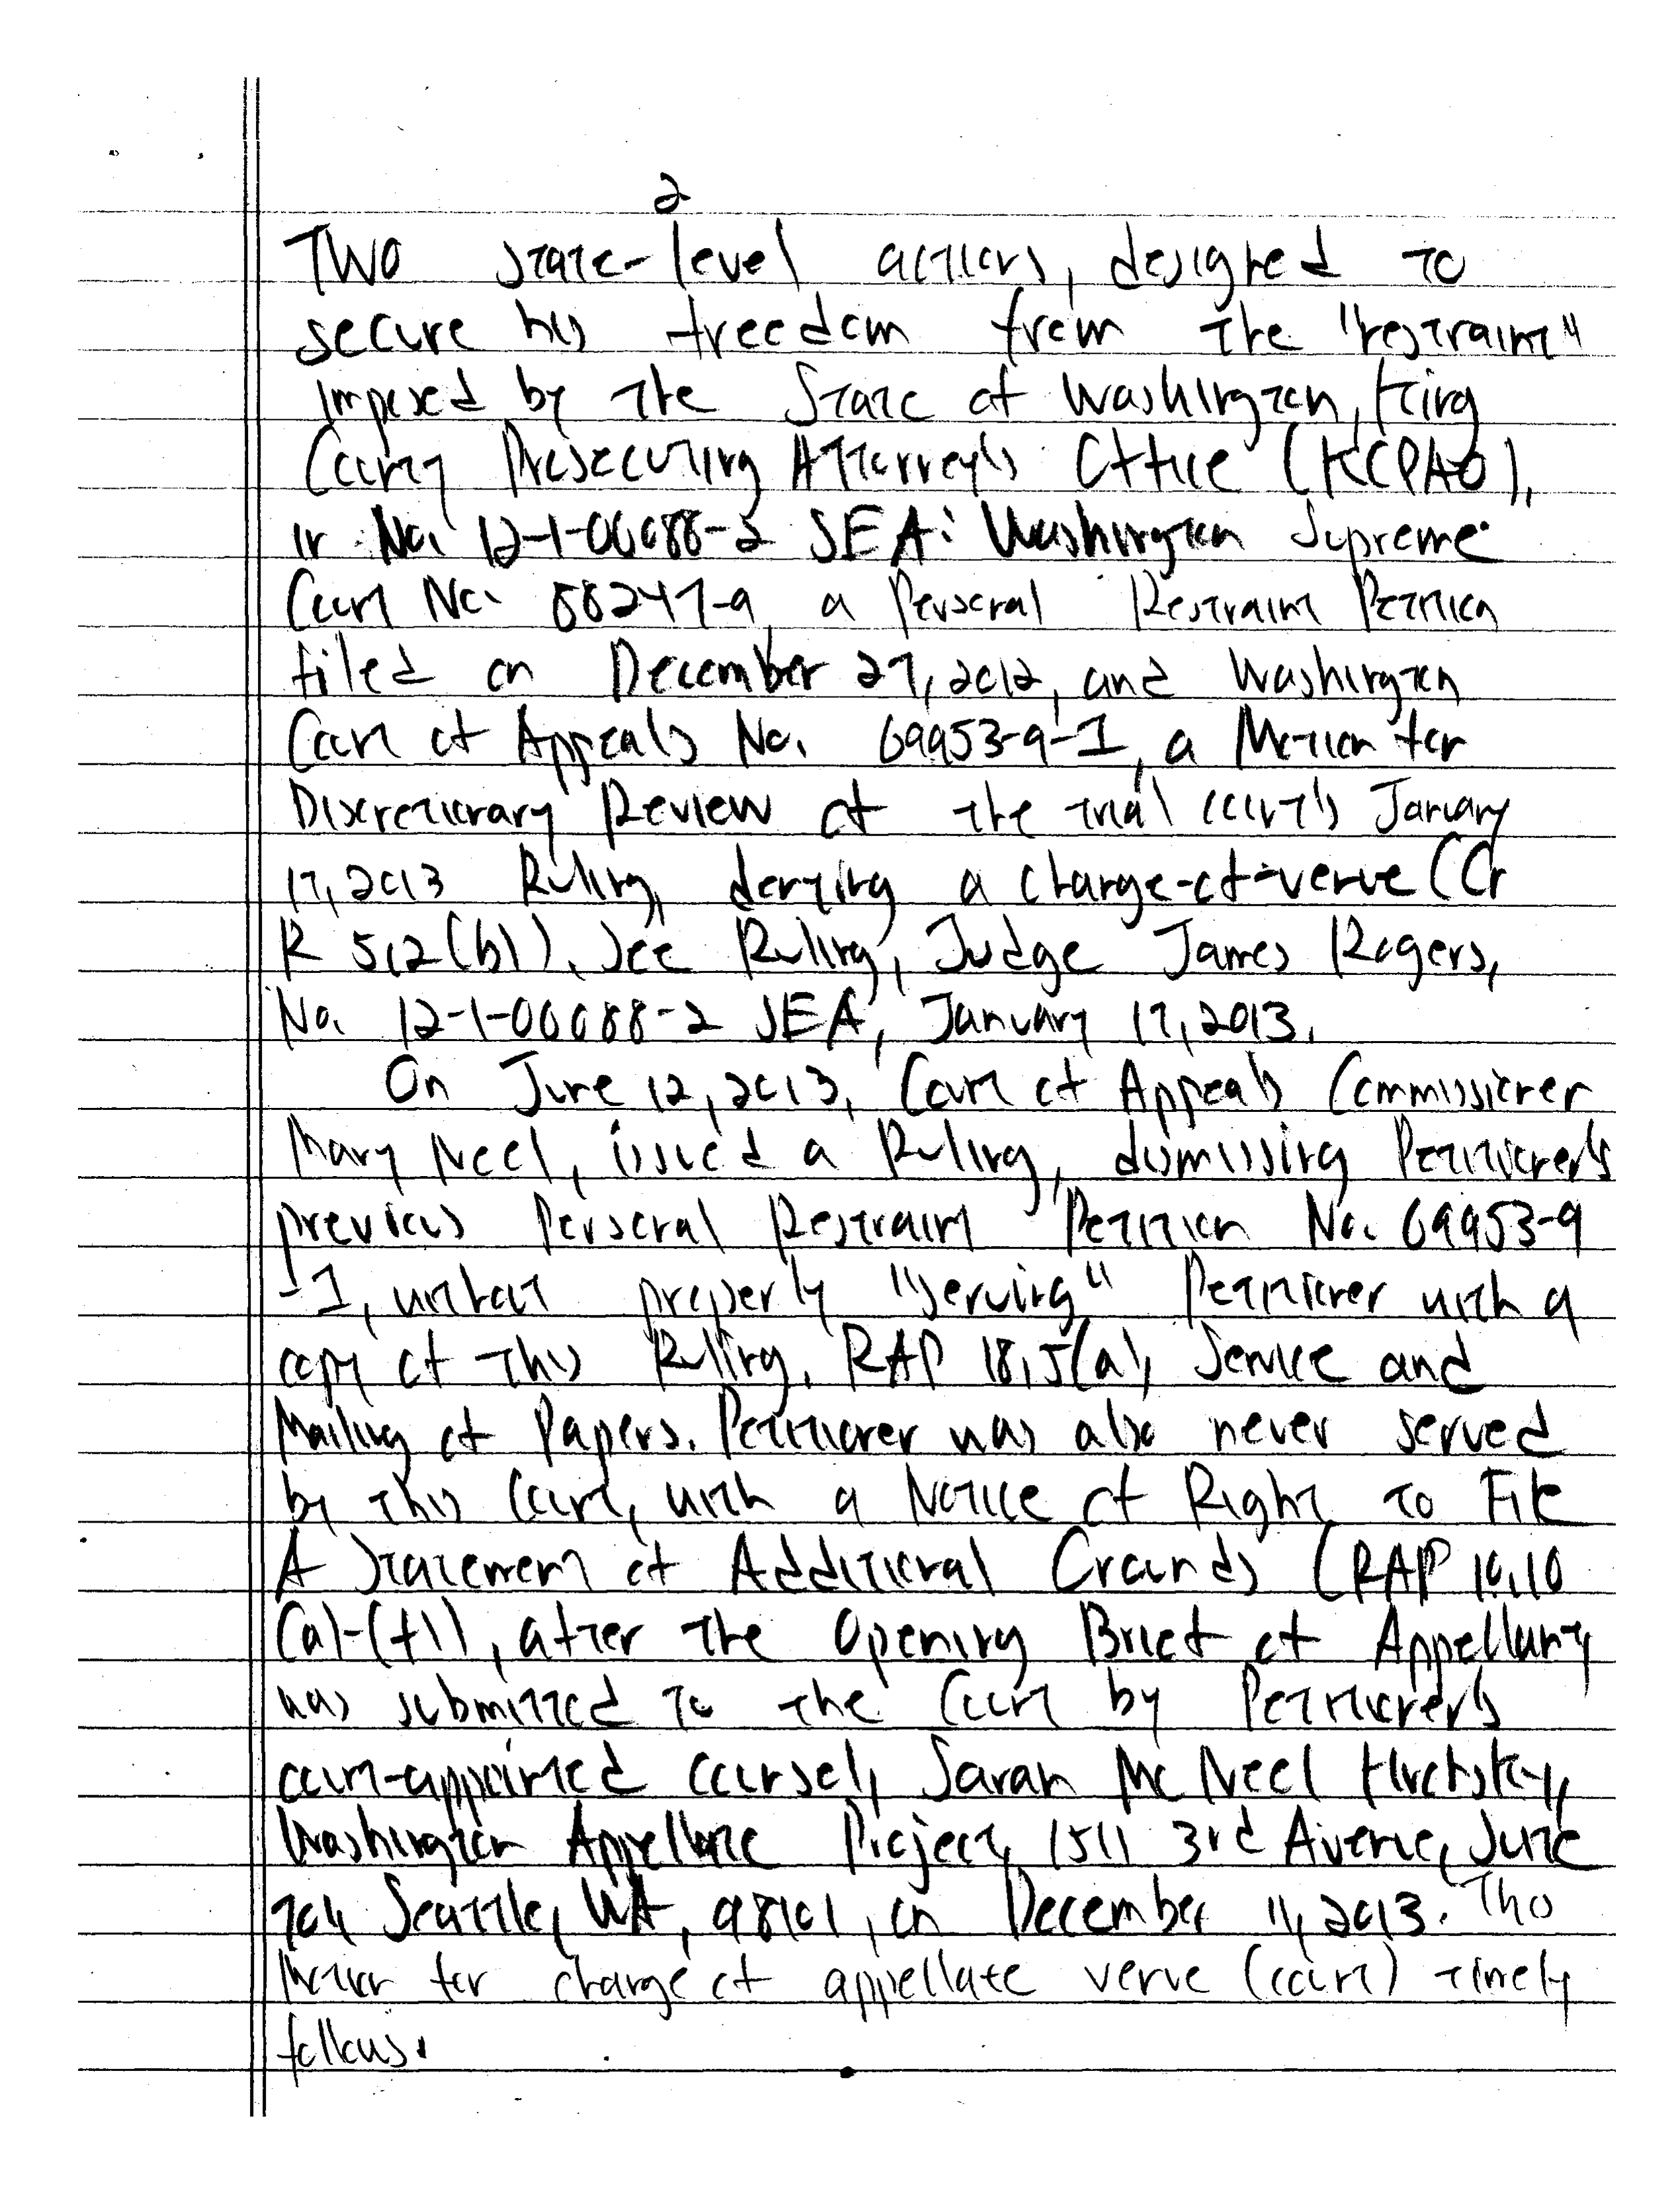 2
Two state-level actions, designed to
secure his freedom from the "restraint"
imposed by the State of Washington, King
County Prosecuting Attorney's Office (KCPAO),
in No. 12-1-00088-2 SEA: Washington Supreme
Court No. 88247-9, a Personal Restraint Petition
filed on December 27, 2012, and Washington
Court of Appeals No. 69953-9-I, a Motion for
Discretionary Review of the trial court's January
17, 2013 Ruling, denying a change-of-venue (Cr
R 5.2(b)). See Ruling, Judge James Rogers,
No. 12-1-00088-2 SEA, January 17, 2013.
On June 12, 2013, Court of Appeals Commissioner
Mary Neel, issued a Ruling, dismissing Petitioner's
previous Personal Restraint Petition No. 69953-9
-I, without properly "serving" Petitioner with a
copy of this Ruling. RAP 18.5(a), Service and
Mailing of Papers. Petitioner was also never served
by this Court, with a Notice of Right to File
A Statement of Additional Grounds (RAP 10.10
(a)-(f)), after the Opening Brief of Appellant,
was submitted to the Court by Petitioner's
court-appointed counsel, Sarah McNeel Hrobsky,
Washington Appellate Project, 1511 3rd Avenue, Suite
701, Seattle, WA, 98101, on December 11, 2013. This
Motion for change of appellate venue (court) timely
follows.